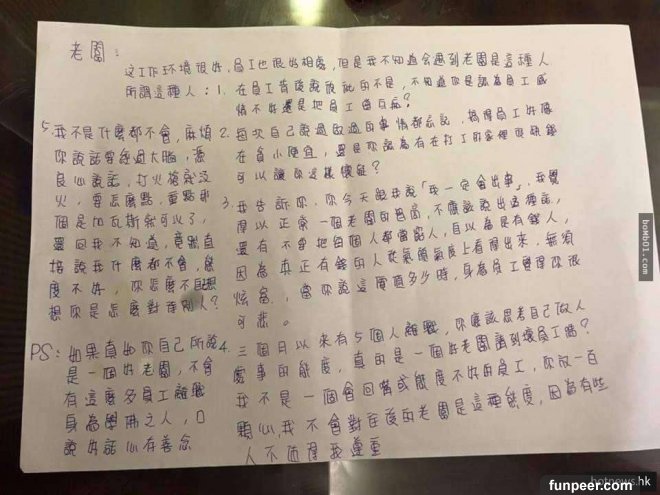 老闆：
這工作环境很好，員工也很好相處，但是我不知道会遇到老闆是這種人
所謂這種人：1. 在員工背後說彼此的不是，不知道你是認為員工感
情不好還是把員工當白痴？
2. 每次自己說過做過的事情都忘記，搞得員工好像
在貪小便宜，還是你認為有在打工的家裡與缺錢
可以讓你這樣懷疑？
3. 我告訴你，你今天跟我說「我一定會出事」，我覺
得以正常一個老闆的思考，不應該說出這種話，
還有不要把每個人都當窮人，自以為是有錢人，
因為真正有錢的人從氣質氣度上看得出來，無須
炫富，當你說這價值多少時，身為員工覺得你很
可悲。
4. 三個月以來有5個人離職，你應該思考自己做人
處事的態度，真的是一個好老闆請到壞員工嗎？
我不是一個會回嘴或態度不好的員工，你放一百
顆心，我不會對往後的老闆是這種態度，因為有些
人不值得我尊重
5. 我不是什麼都不會，麻煩
你說話要經過大腦，憑
良心說話，打火槍就沒
火，要怎麼點，重點那
個是加瓦斯就可以了，
還回我不知道，竟敢直
接說我什麼都不會，態
度不好，你怎麼不想想
想你是怎麼對待別人？
PS：如果真如你自己所說
是一個好老闆，不會
有這麼多員工離職
身為學佛之人，口
說好話心存善念
boMb01.com
hotnews.hk
funpeer.com